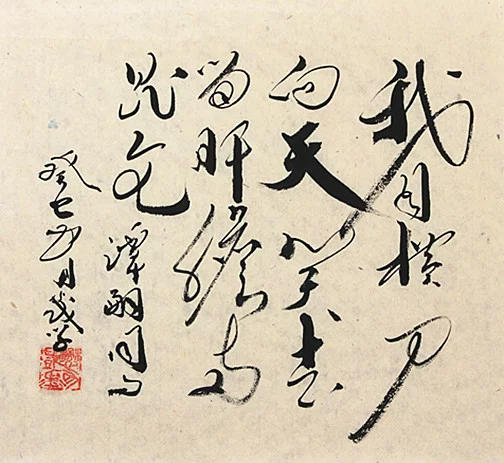 我自横刀
向天笑去
留肝膽两
昆仑 譚嗣同句
癸巳 月